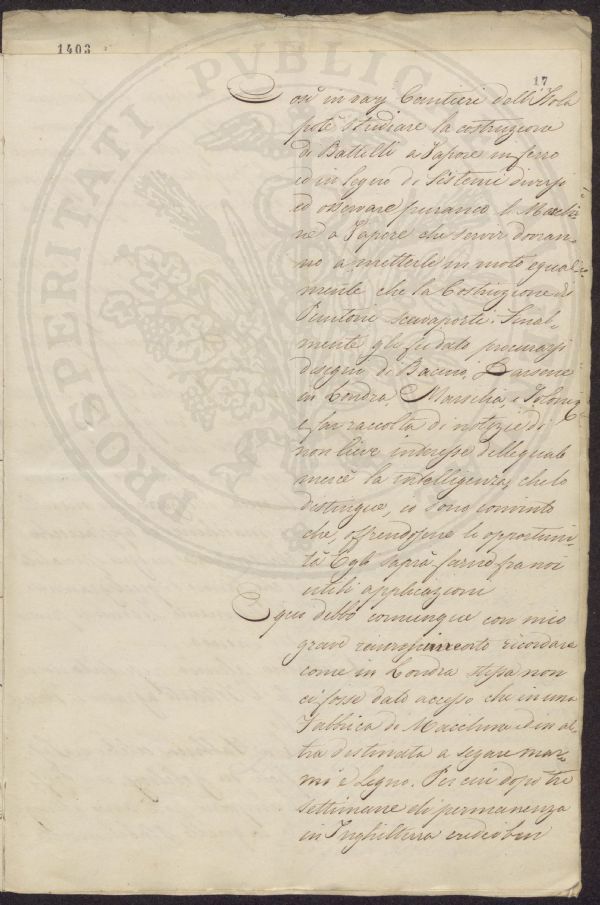 1403
17
PROSPERITATI PVBLIC
Così in varj Cantieri dell'Isola
potè studiare la costruzione
di Battelli a Vapore in ferro
ed in legno di Sistemi diversi
ed osservare puranco le Macchi-
ne a Vapore che servir dovran-
no a metterle in moto egual-
mente che la Costruzione di
Puntoni scavaporti. Final-
mente gli fu dato procurarsi
disegni di Bacini, Darsene
in Londra, Marsilia, e Tolone
e far raccolta di notizie di
non lieve interesse delle quali
mercè la intelligenza che lo
distingue, io sono convinto
che, offrendosene le opportuni-
tà Egli saprà farne fra noi
utili applicazioni
E qui debbo comunque con mio
grave rincrescimento ricordare
come in Londra stessa non
ci fosse dato accesso che in una
Fabbrica di Macchine ed in al-
tra destinata a segare mar-
mi e legno. Per cui dopo tre
settimane di permanenza
in Inghilterra credei ben